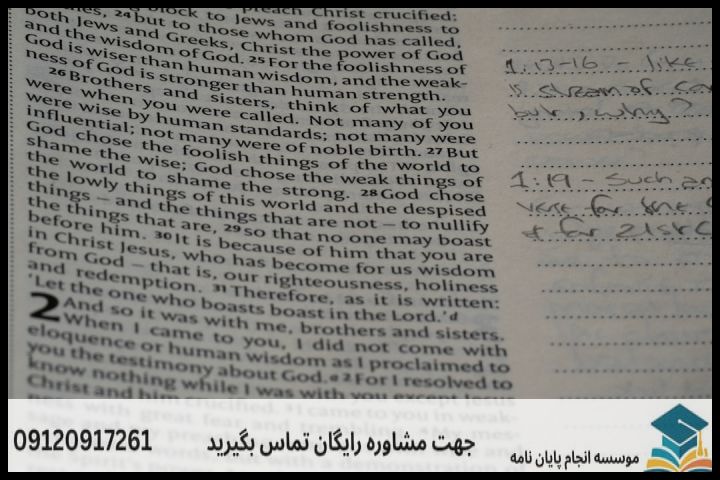 preach Christ crucified:
block to Jews and foolishness to
24 but to those whom God has called,
both Jews and Greeks, Christ the power of God
and the wisdom of God. 25 For the foolishness of
God is wiser than human wisdom, and the weak-
ness of God is stronger than human strength.
26 Brothers and sisters, think of what you
were when you were called. Not many of you
were wise by human standards; not many were
influential; not many were of noble birth. 27 But
God chose the foolish things of the world to
shame the wise; God chose the weak things of
the world to shame the strong. 28 God chose
the lowly things of this world and the despised
things – and the things that are not – to nullify
the things that are, 29 so that no one may boast
before him. 30 It is because of him that you are
in Christ Jesus, who has become for us wisdom
from God – that is, our righteousness, holiness
and redemption. 31 Therefore, as it is written:
'Let the one who boasts boast in the Lord.' d
2 And so it was with me, brothers and sisters.
When I came to you, I did not come with
eloquence or human wisdom as I proclaimed to
you the testimony about God. a 2 For I resolved to
know nothing while I was with you except Jesus
Christ and him crucified. 3 I came to you in weak-
ness with great fear and trembling.
1:13-16 - like
is stream of
but, why?
1:19 - Such
verse for the
& for 21st C
جهت مشاوره رایگان تماس بگیرید
09120917261
موسسه انجام پایان نامه